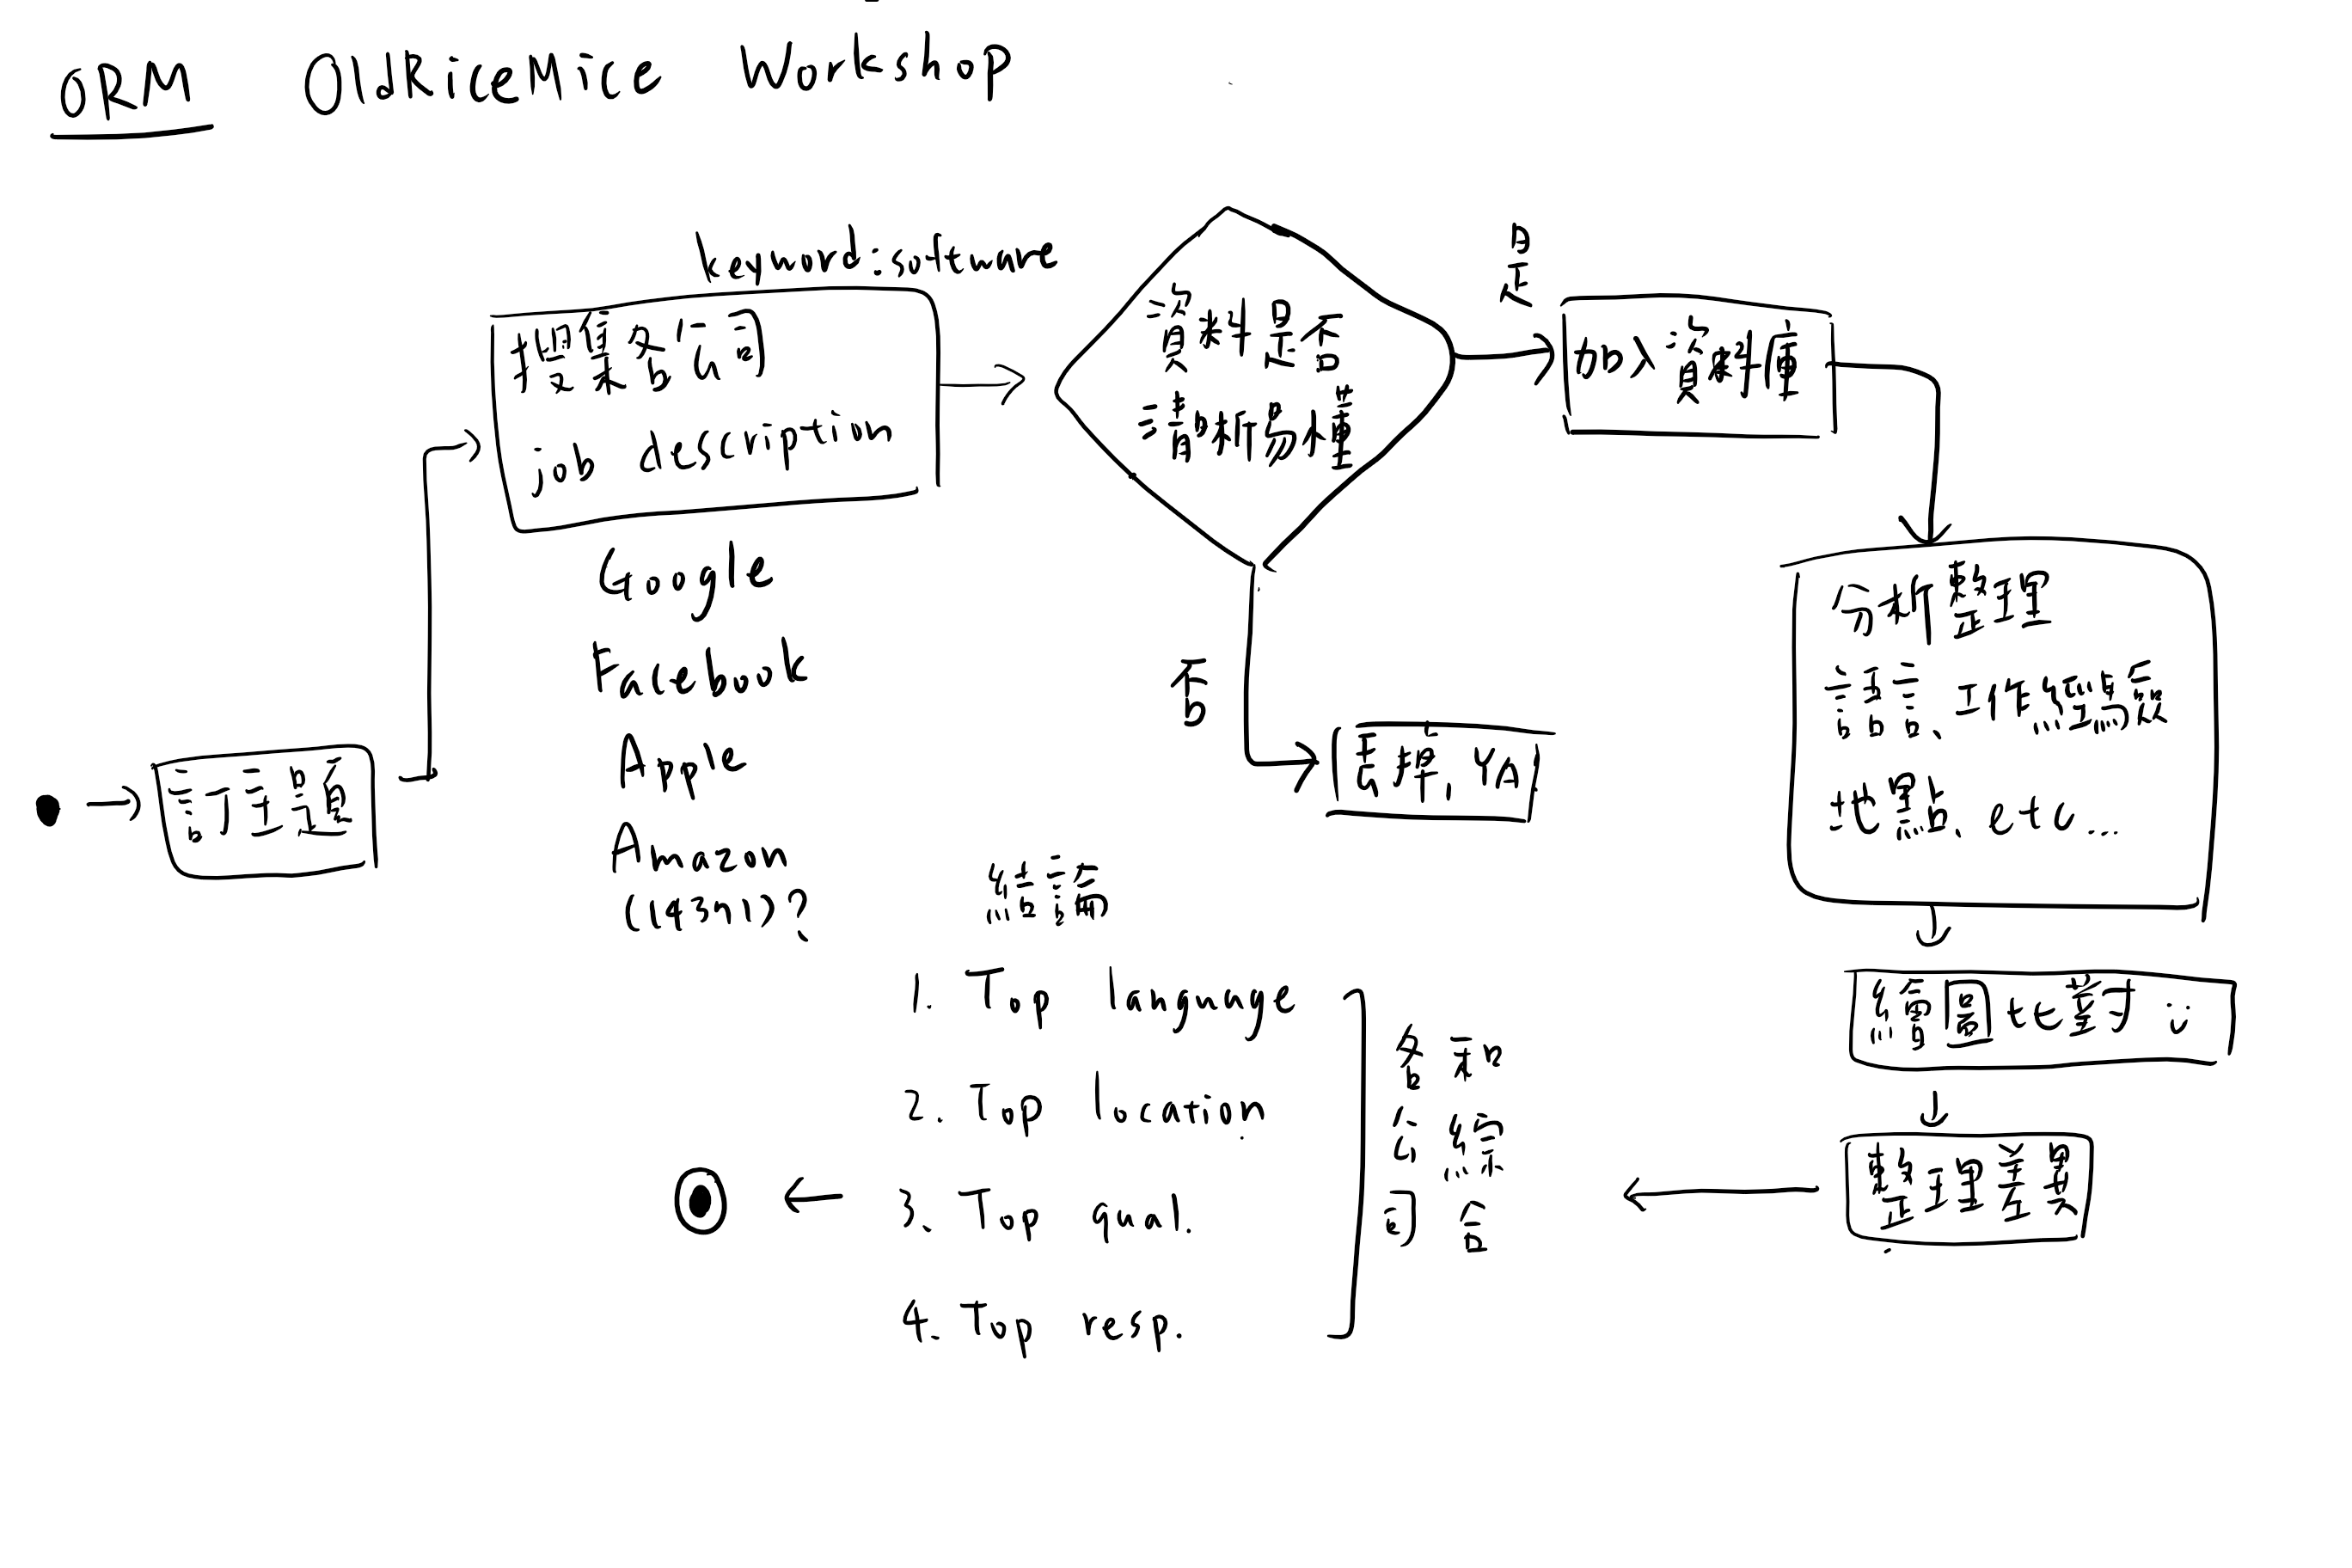 ORM OldRiceMice Workshop
keyword:software
搜集各公司
job description
Google
Facebook
Apple
Amazon
訂主題
資料是否
清晰易懂
是
加入資料庫
否
丟掉, YA
分析整理
語言、工作經驗
地點、etc...
繪圖比對
整理差異
結論
1. Top language
2. Top location
3. Top qual.
4. Top resp.
各公司
和綜合